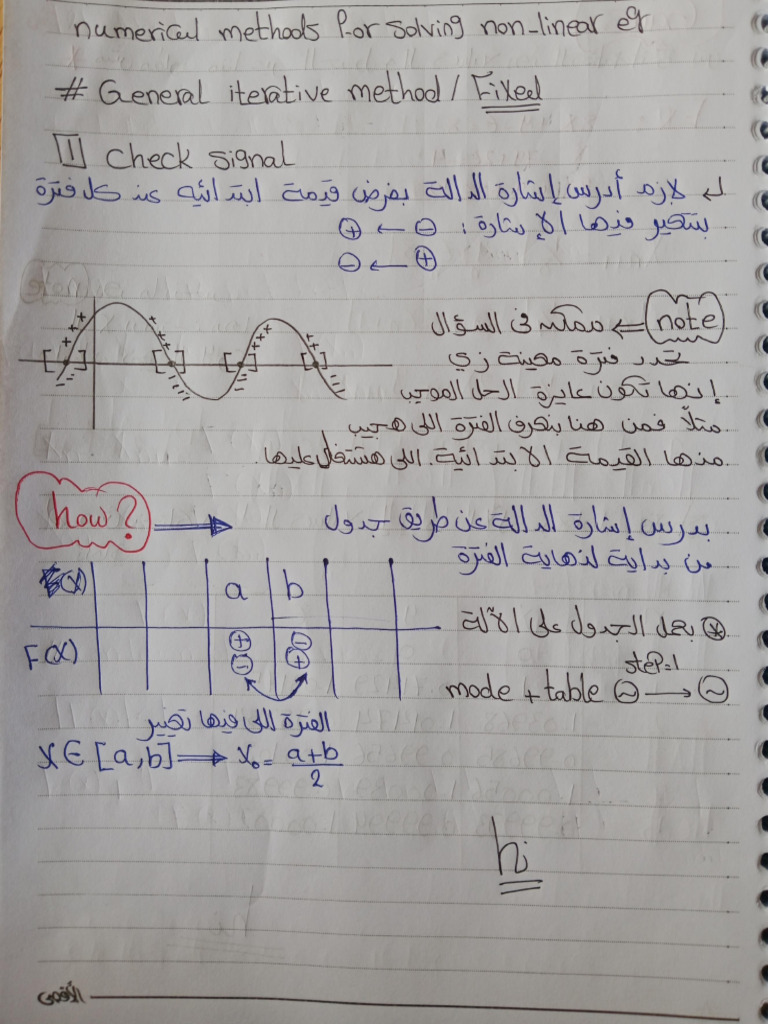 numerical methods for solving non-linear eq
# General iterative method / Fixed
1 Check signal
↳ لازم أدرس إشارة الدالة بفرض قيمة ابتدائيه عند كل فترة
بتتغير فيها الإشارة: ⊖ ← ⊕
⊕ ← ⊖
note ⇐ ممكن فى السؤال
يحدد فترة معينة زي
إنها تكون عايزة الحل الموجب
مثلاً فمن هنا بنعرف الفترة اللى هجيب
منها القيمة الابتدائية اللى هشتغل عليها.
how? ⟹ بدرس إشارة الدالة عن طريق جدول
من بداية لنهاية الفترة
(x) a b
F(x) ⊕ ⊖
⊖ ⊕
⊛ بعمل الجدول على الآلة
step=1
mode + table ⊝ → ⊝
الفترة اللى فيها تغيير
x ∈ [a,b] ⟹ x₀ = a+b / 2
hi
الأقصى